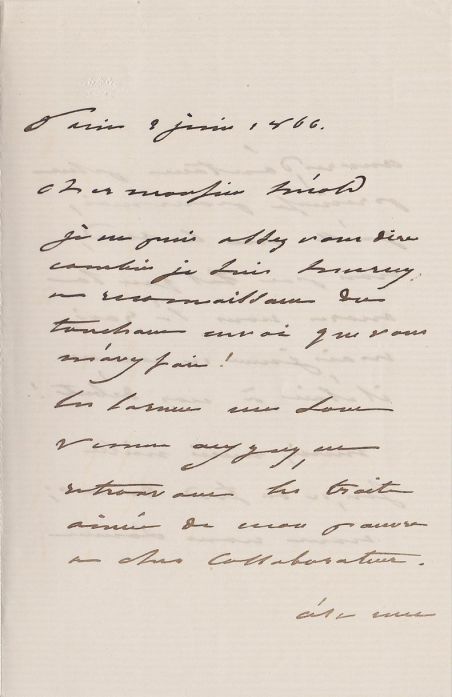 Paris 2 juin 1866.
Cher monsieur
je ne puis assez vous dire
combien je suis
et reconnaissant du
touchant envoi que vous
m'avez fait!
les larmes me sont
venues aux yeux, en
retrouvant les traits
aimés de mon pauvre
et cher collaborateur.